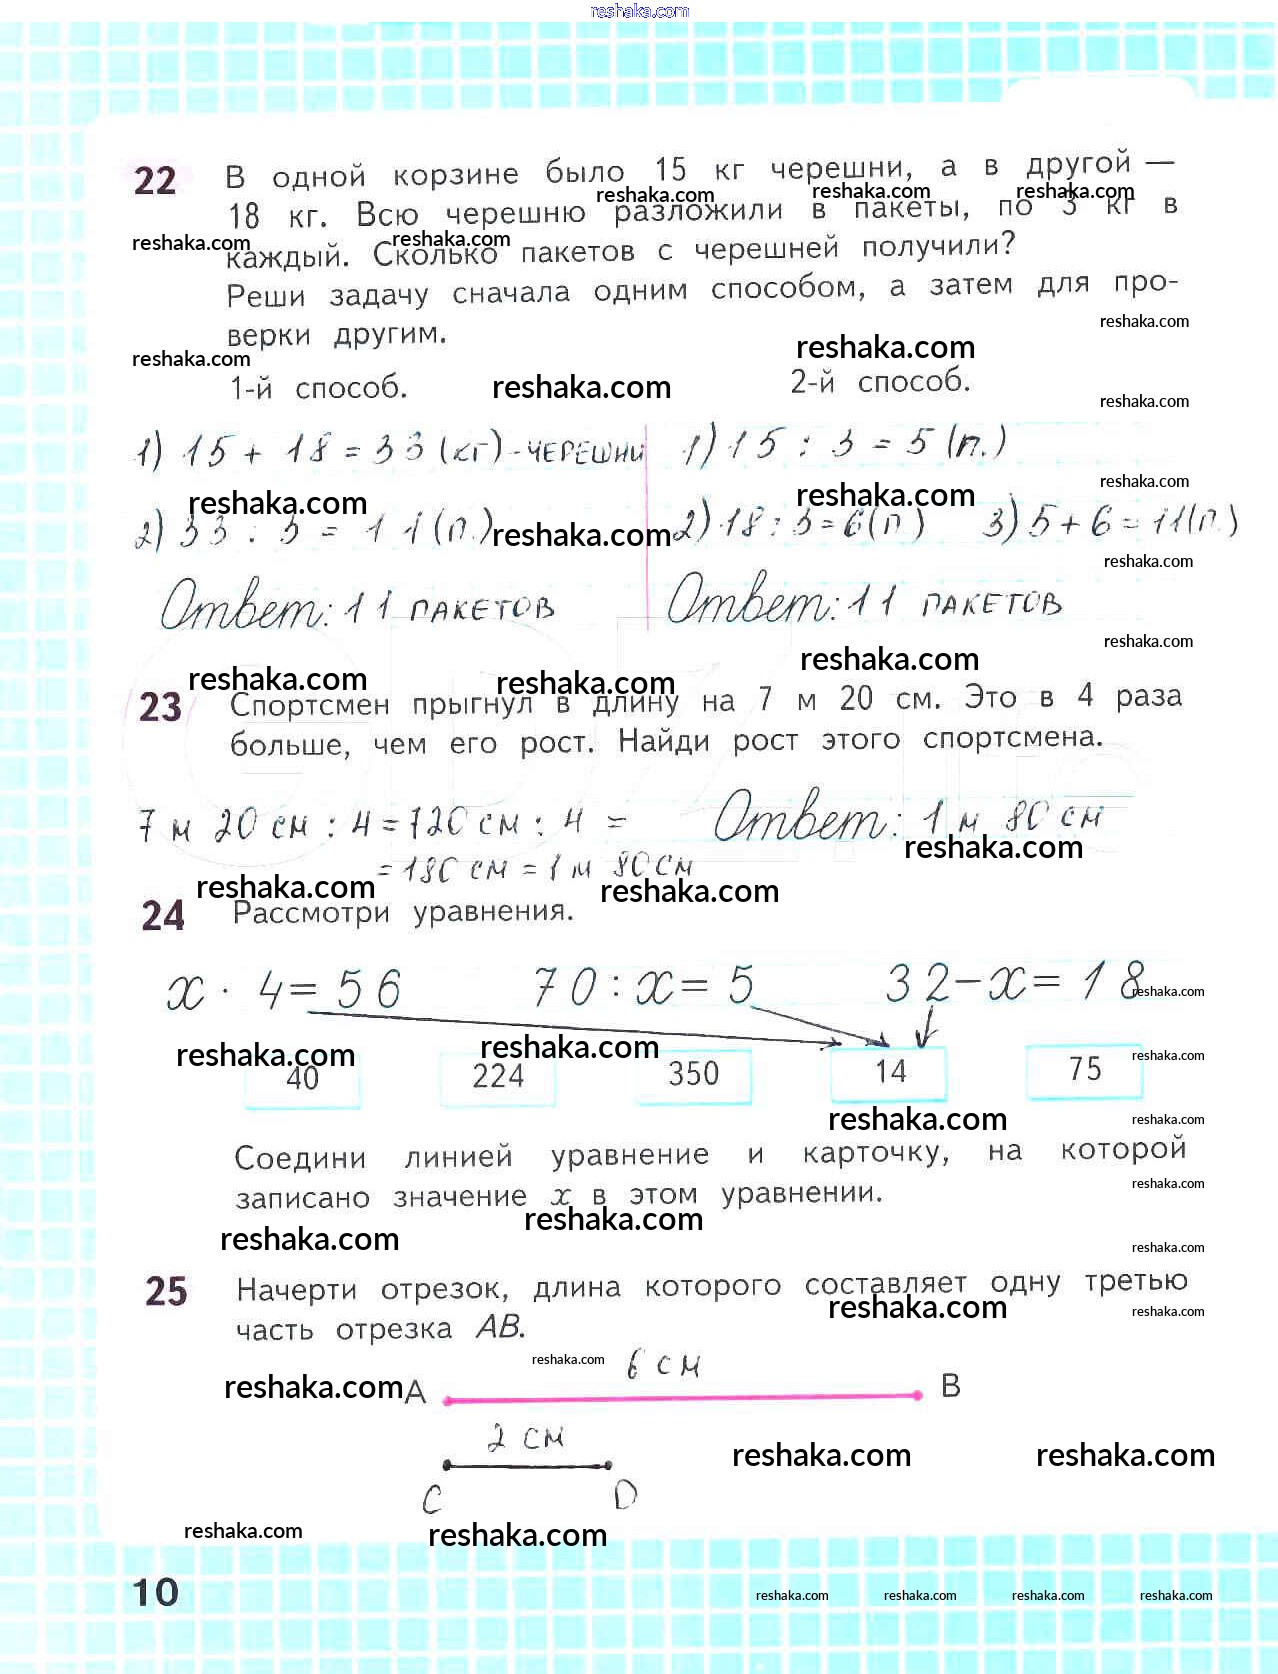 reshaka.com
22 В одной корзине было 15 кг черешни, а в другой —
reshaka.com reshaka.com reshaka.com
18 кг. Всю черешню разложили в пакеты, по 3 кг в
reshaka.com reshaka.com
каждый. Сколько пакетов с черешней получили?
Реши задачу сначала одним способом, а затем для про-
reshaka.com
верки другим.
reshaka.com reshaka.com
1-й способ. reshaka.com 2-й способ.
reshaka.com
1) 15 + 18 = 33 (кг) - ЧЕРЕШНИ 1) 15 : 3 = 5 (п.)
reshaka.com
reshaka.com reshaka.com
2) 33 : 3 = 11 (п.) reshaka.com 2) 18 : 3 = 6 (п) 3) 5 + 6 = 11 (п.)
reshaka.com
Ответ: 11 ПАКЕТОВ Ответ: 11 ПАКЕТОВ
reshaka.com
reshaka.com reshaka.com reshaka.com
23 Спортсмен прыгнул в длину на 7 м 20 см. Это в 4 раза
больше, чем его рост. Найди рост этого спортсмена.
7 м 20 см : 4 = 720 см : 4 = Ответ: 1 м 80 см
reshaka.com
= 180 см = 1 м 80 см
reshaka.com reshaka.com
24 Рассмотри уравнения.
x · 4 = 56 70 : x = 5 32 − x = 18
reshaka.com
reshaka.com reshaka.com reshaka.com
40 224 350 14 75
reshaka.com reshaka.com
Соедини линией уравнение и карточку, на которой
reshaka.com
записано значение x в этом уравнении.
reshaka.com reshaka.com
reshaka.com
25 Начерти отрезок, длина которого составляет одну третью
reshaka.com reshaka.com
часть отрезка AB.
reshaka.com 6 см
reshaka.com A B
2 см
reshaka.com reshaka.com
C D
reshaka.com reshaka.com
10
reshaka.com reshaka.com reshaka.com reshaka.com